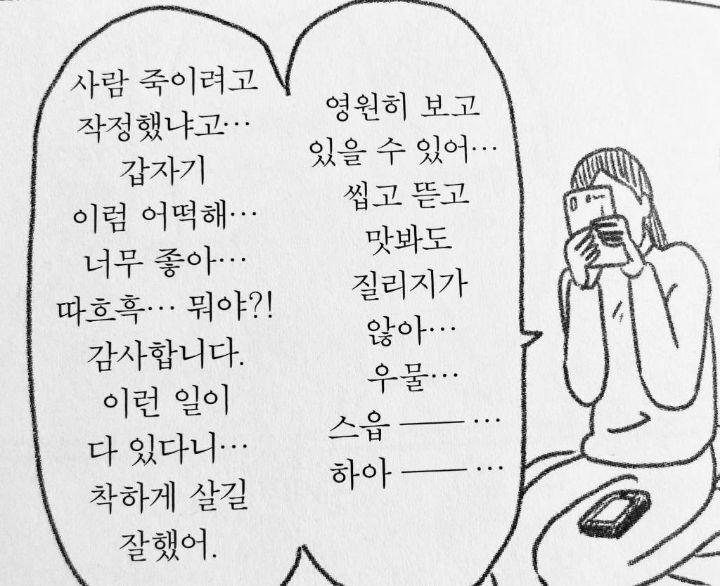 사람 죽이려고
작정했냐고…
갑자기
이럼 어떡해…
너무 좋아…
따흐흑… 뭐야?!
감사합니다.
이런 일이
다 있다니…
착하게 살길
잘했어.
영원히 보고
있을 수 있어…
씹고 뜯고
맛봐도
질리지가
않아…
우물…
스읍 ──…
하아 ──…